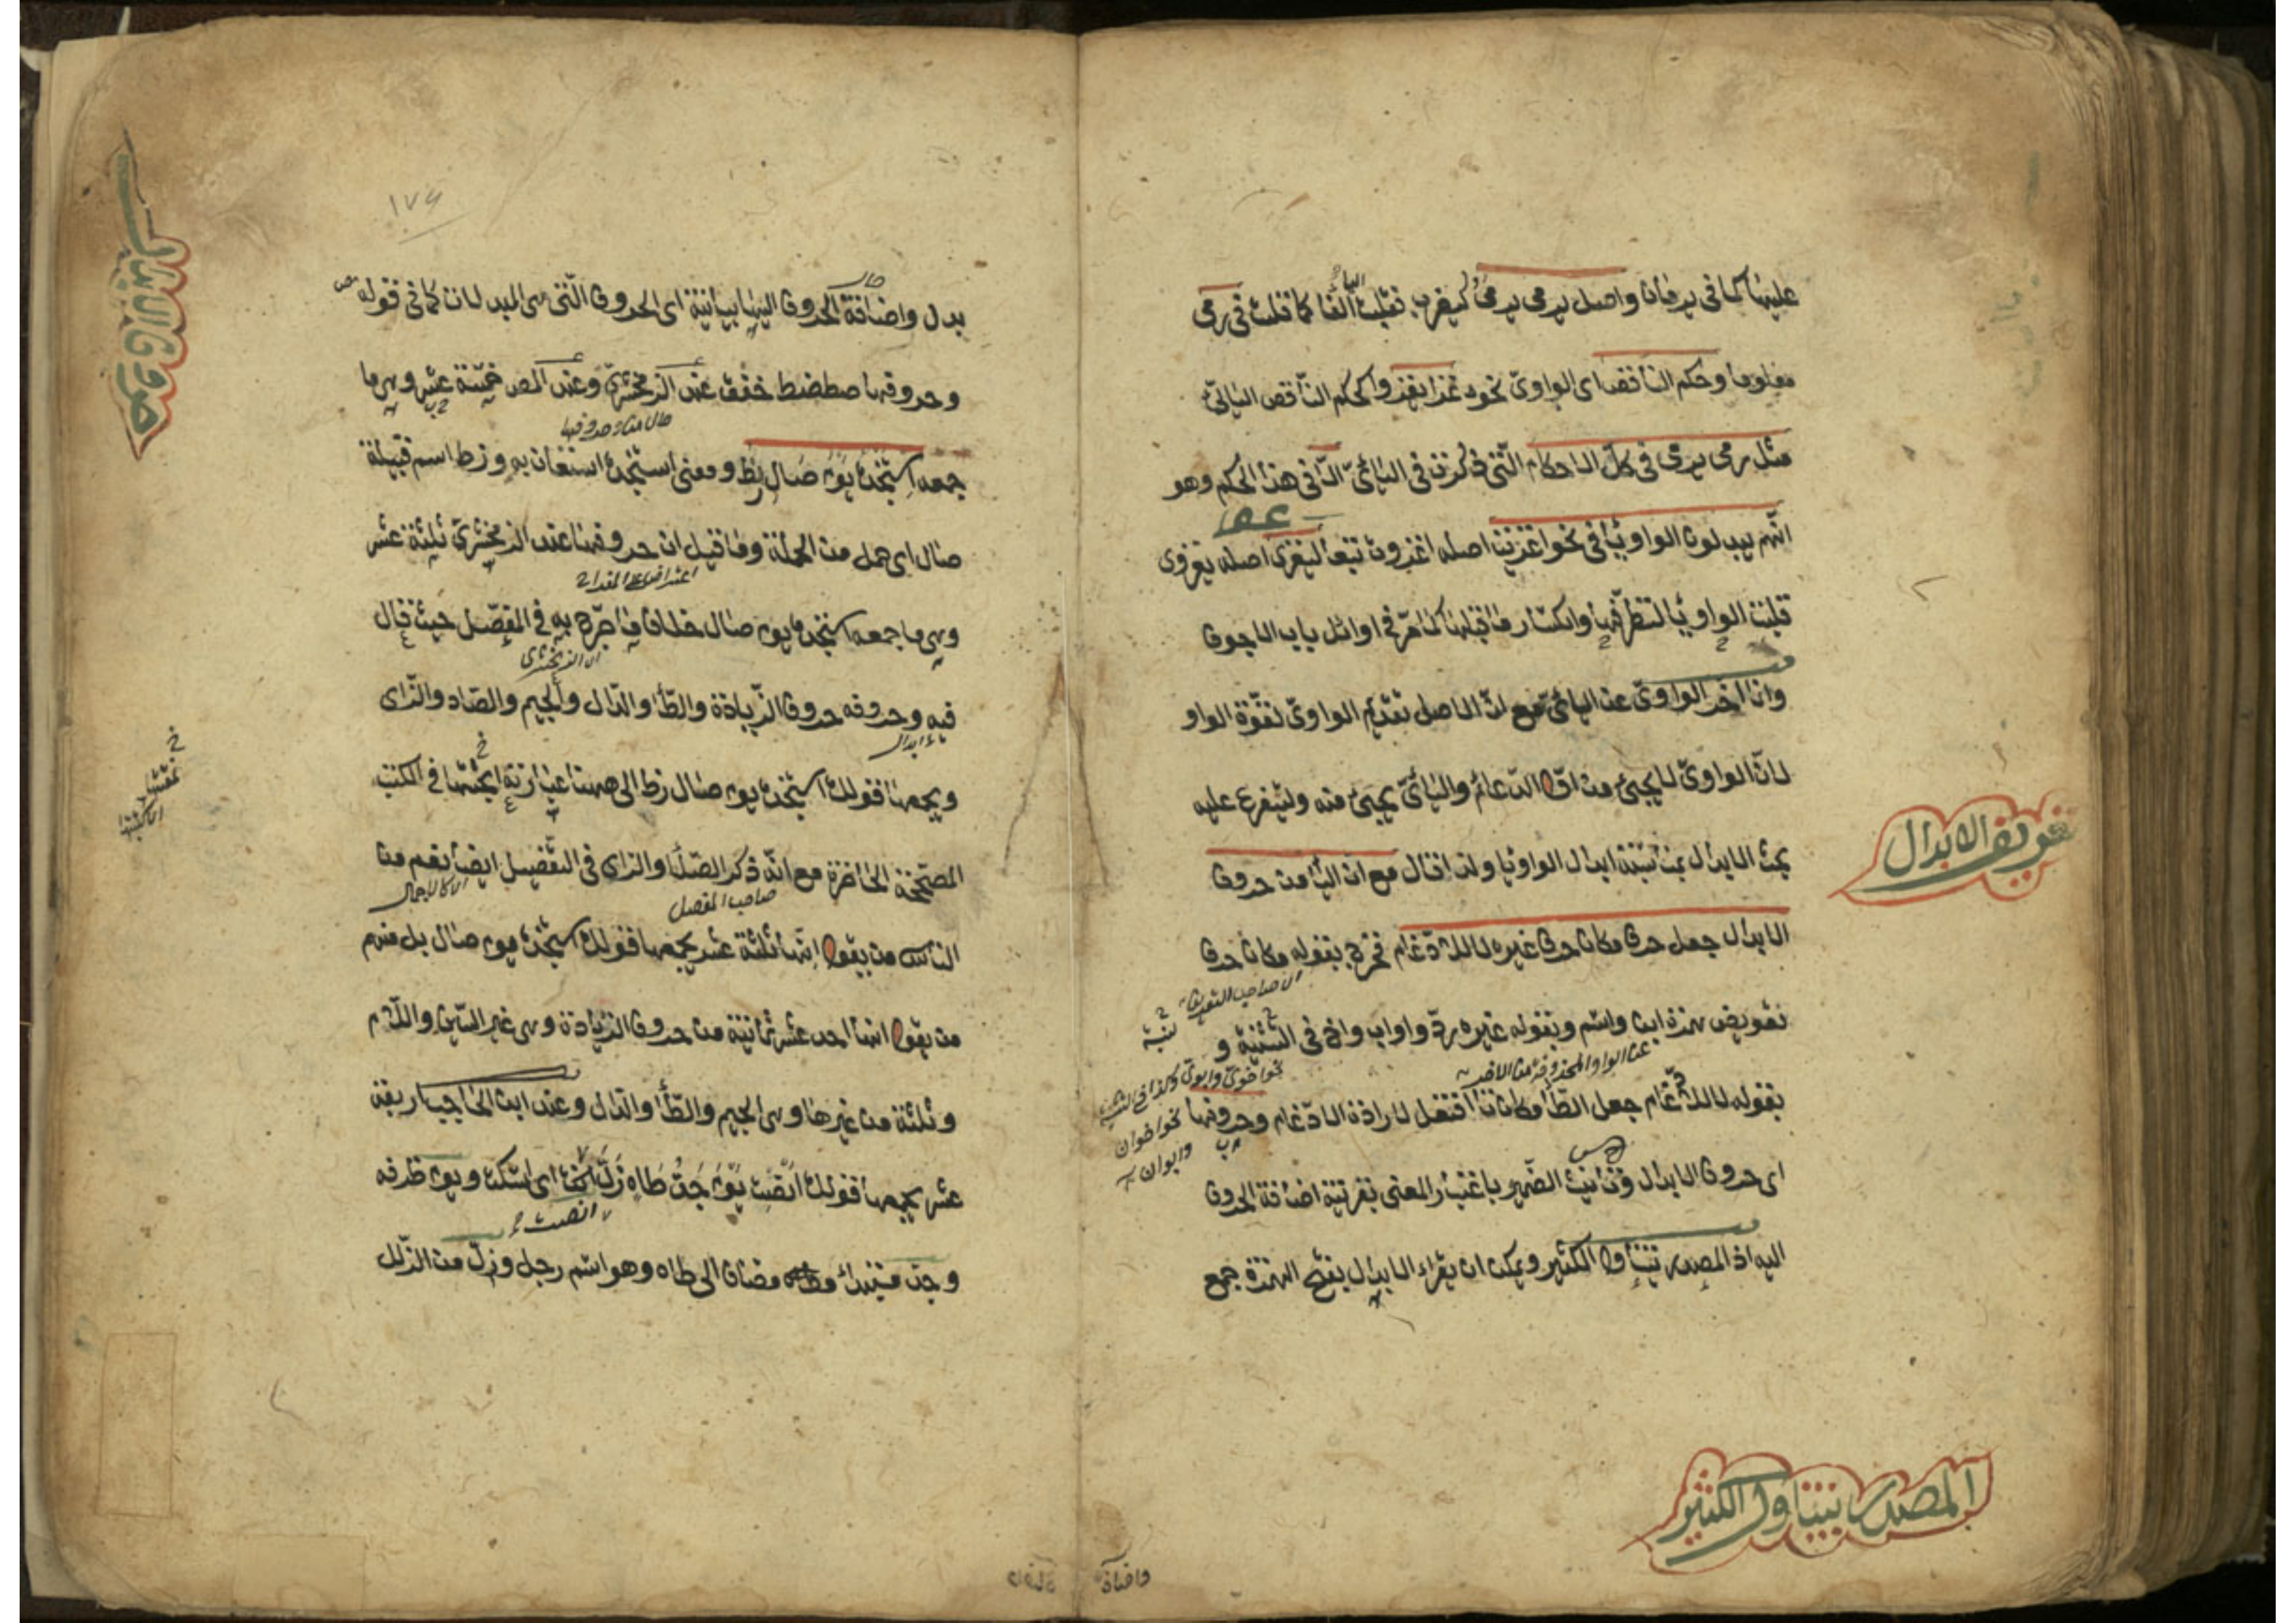 عليها كما فى يرميان واصل يرمى يرمى كيضرب فقلبت الياء الفا كما قلبت فى رمى
معلوما وحكم الناقص اى الواوىّ نحو غزا يغزو كحكم الناقص اليائىّ
مثل رمى يرمى فى كلّ الاحكام الّتى ذكرت فى اليائىّ الّا فى هذا الحكم وهو
انّهم يبدلون الواو يأ فى نحو اغزيت اصله اغزوت تبعا ليغزى اصله يغزوى
قلبت الواو يأ لتطرّفها وانكسار ما قبلها كما مرّ فى اوائل باب الاجوف
وانما اخر الواوىّ عن اليائىّ مع انّ الاصل تقديم الواوىّ لقوّة الواو
لانّ الواوىّ لا يجئ من الدّعائم واليائىّ يجئ منه وليتفرع عليه
بحث الابدال بمناسبة ابدال الواو يا ولذا قال مع ان اليأ من حروف
الابدال جعل حرف مكان حرف غيره لا للادّغام فخرج بقوله مكان حرف
تعويض همزة ابن واسم وبقوله غيره ردّ واو اب واخ فى التثنية و
بقوله لا للادّغام جعل الطأ مكان تا افتعل لارادة الادّغام وحروفها
اى حروف الابدال وتأنيث الضّمير باعتبار المعنى بقرينة اضافة الحروف
اليه اذ المصدر يتناول الكثير ويمكن ان يقراء الابدال بفتح الهمزة جمع
اى صاحب التعريف
عن الواو المحذوفة من الاخر
نحو اخوىّ وابوىّ وكذا فى التثنية
نحو اخوان
وابوان
تعريف الابدال
المصدر يتناول الكثير
١٧٤
بدل واضافة الحروف اليها بيانية اى الحروف الّتى هى المبدلات كما فى قوله
وحروفها صطضط خفق عند الزمخشرىّ وعند المص خمسة عشر وهى ما
جمعه استنجده يوم صال زط ومعنى استنجده استعان به وزط اسم قبيلة
صال اى حمل من الحملة وما قيل ان حروفها عند الزمخشرىّ ثلثة عشر
وهى ما جمعه استنجده يوم صال خلاف ما صرّح به فى المفصّل حيث قال
فيه وحروفه حروف الزّيادة والطّأ والدّال والجيم والصّاد والزّاى
ويجمعها قولك استنجده يوم صال زط الى ههنا عبارته فى الكتب
المصحّحة الحاضرة مع انّه ذكر الصّاد والزاى فى التفصيل ايضا نعم من
الناس من يقول انّها ثلثة عشر يجمعها قولك استنجده يوم صال بل منهم
من يقول انها احد عشر ثمانية من حروف الزّيادة وهى غير السّين واللّام
وثلثة من غيرها وهى الجيم والطّأ والدّال وعند ابن الحاجب اربعة
عشر يجمعها قولك انصت يوم جدّ طاه زلّ اى اسكت ويوم ظرفه
وجدّ مبتدأ مضاف الى طاه وهو اسم رجل وزلّ من الزّلل
اعتراض على
اى الزمخشرى
صاحب المفصل
انصت